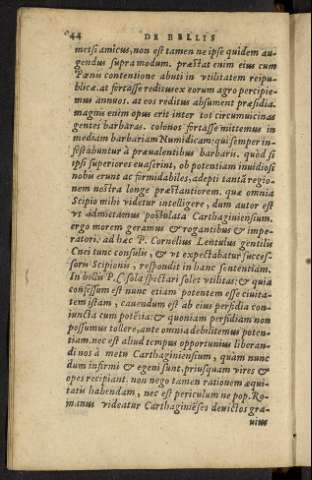 44 DE BELLIS
metsi amicus, non est tamen ne ipse quidem au-
gendus supra modum. præstat enim eius cum
Pœnis contentione abuti in vtilitatem reipu-
blicæ. at fortasse reditus ex eorum agro percipie-
mus annuos. at eos reditus absument præsidia.
magnis enim opus erit inter tot circumuicinas
gentes barbaras. colonos fortasse mittemus in
mediam barbariam Numidicam: qui semper in-
festabuntur à præualentibus barbaris. quòd si
ipsi superiores euaserint, ob potentiam inuidiosi
nobis erunt ac formidabiles, adepti tantã regio-
nem nostra longè præstantiorem. quæ omnia
Scipio mihi videtur intelligere, dum autor est
vt admittamus postulata Carthaginiensium.
ergo morem geramus & rogantibus & impe-
ratori. ad hæc P. Cornelius Lentulus gentilis
Cnei tunc consulis, & vt expectabatur succes-
soris Scipionis, respondit in hanc sententiam.
In bellis P. C. sola spectari solet vtilitas: & quia
confessum est nunc etiam potentem esse ciuita-
tem istam, cauendum est ab eius perfidia con-
iuncta cum potẽtia: & quoniam perfidiam non
possumus tollere, ante omnia debilitemus poten-
tiam. nec est aliud tempus opportunius liberan-
di nos à metu Carthaginiensium, quàm nunc
dum infirmi & egeni sunt, priusquam vires &
opes recipiant. non nego tamen rationem æqui-
tatis habendam, nec est periculum ne pop. Ro-
manus videatur Carthaginiẽses deuictos gra-
uius